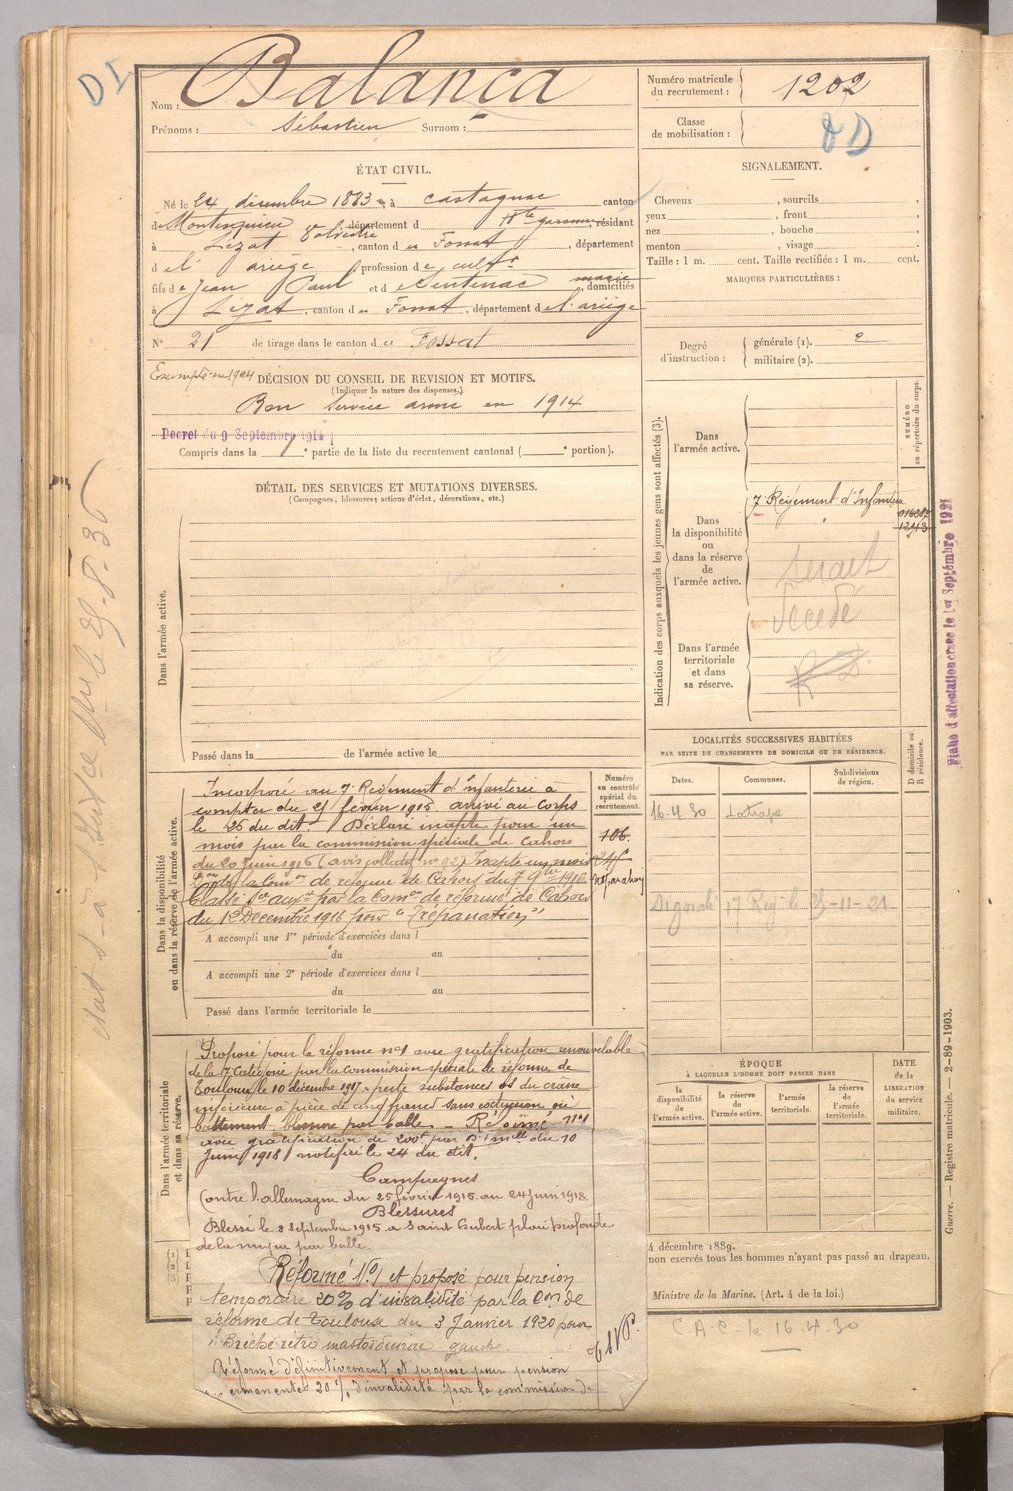 D I
Nom : Balanca
Prénoms : Sébastien Surnom :
Numéro matricule du recrutement : 1202
Classe de mobilisation :
ÉTAT CIVIL.
Né le 24 décembre 1883, à Castagnac canton
de Montesquieu Volvestre, département d Hte garonne, résidant
à Lézat, canton d u Fossat, département
d e l' ariège profession de cultr
fils de Jean Paul et de Sentenac marie, domiciliés
à Lézat, canton d u Fossat, département de l'ariège
N° 21 de tirage dans le canton d u Fossat
SIGNALEMENT.
Cheveux , sourcils ,
yeux , front ,
nez , bouche ,
menton , visage
Taille : 1 m. cent. Taille rectifiée : 1 m. cent.
MARQUES PARTICULIÈRES :
Degré d'instruction : générale (1). 2
militaire (2).
Exempté en 1904
DÉCISION DU CONSEIL DE REVISION ET MOTIFS.
(Indiquer la nature des dispenses.)
Bon service armé en 1914
Decret du 9 Septembre 1914
Compris dans la 1e partie de la liste du recrutement cantonal ( e portion).
DÉTAIL DES SERVICES ET MUTATIONS DIVERSES.
(Campagnes, blessures, actions d'éclat, décorations, etc.)
Dans l'armée active.
Passé dans la de l'armée active le
Indication des corps auxquels les jeunes gens sont affectés (3).
NUMÉRO au répertoire du corps.
Dans l'armée active.
Dans la disponibilité ou dans la réserve de l'armée active.
7 Régiment d'Infanterie
Décédé
Dans l'armée territoriale et dans sa réserve.
R D
Fiche d'affectation crée le 1er Septembre 1921
LOCALITÉS SUCCESSIVES HABITÉES
PAR SUITE DE CHANGEMENTS DE DOMICILE OU DE RÉSIDENCE.
Dates. Communes. Subdivisions de région. D domicile ou R résidence.
16-4-30 Latrape
Signalé 17 Rég. le 25-11-21
Dans la disponibilité ou dans la réserve de l'armée active.
Numéro au contrôle spécial du recrutement.
106.
Incorporé au 7e Régiment d'infanterie à
compter du 25 février 1915. arrivé au corps
le 26 du dit. Déclaré inapte pour un
mois par la commission spéciale de Cahors
du 20 Juin 1916 (avis collectif n° 92) Inapte un mois
 de réforme de Cahors du 7 9bre 1916.
Classé Sce auxre par la Comon de réforme de Cahors
du 1er Décembre 1916 pour "(trépanation)"
A accompli une 1re période d'exercices dans l
du au
A accompli une 2e période d'exercices dans l
du au
Passé dans l'armée territoriale le
Dans l'armée territoriale et dans sa réserve.
Proposé pour la réforme n°1 avec gratification renouvelable
de la 7 Catégorie par la commission spéciale de réforme de
Toulouse, le 10 décembre 1917 perte substances os du crâne
inférieure à pièce de cinq francs sans ni
battement, blessure par balle. Réformé n°1
avec gratification de 200f par Don mlle du 10
Juin 1918 notifiée le 24 du dit.
Campagnes
Contre l'allemagne du 25 février 1915 au 24 juin 1918.
Blessures
Blessé le 8 septembre 1915 a Saint hubert plaie profonde
de la nuque par balle.
Réformé N°1 et proposé pour pension
temporaire 20% d'invalidité par la Con de
réforme de Toulouse du 3 Janvier 1920 pour
"Brèche rétro mastoïdienne gauche.
Réformé définitivement et proposé pour pension
permanente 20 % d'invalidité par la commission de
ÉPOQUE
À LAQUELLE L'HOMME DOIT PASSER DANS
la disponibilité de l'armée active. la réserve de l'armée active. l'armée territoriale. la réserve de l'armée territoriale.
DATE de la LIBÉRATION du service militaire.
4 décembre 1889.
non exercés tous les hommes n'ayant pas passé au drapeau.
Ministre de la Marine. (Art. 4 de la loi.)
C.A.C. le 16.4.30
Guerre. — Registre matricule. — 2-89-1903.
(1)
(2)
(3)